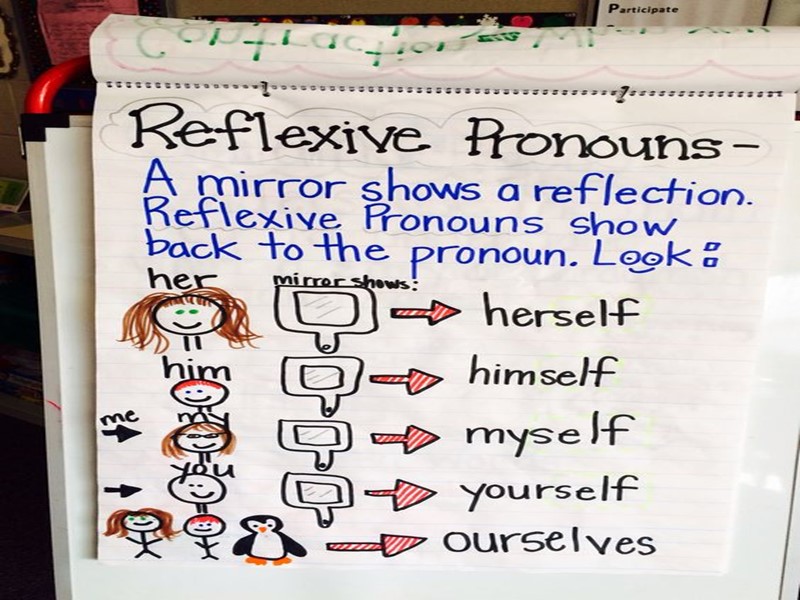 Participate
Contraction - When you
Reflexive Pronouns-
A mirror shows a reflection.
Reflexive Pronouns show
back to the pronoun. Look:
her mirror shows: herself
him himself
me my myself
you yourself
ourselves